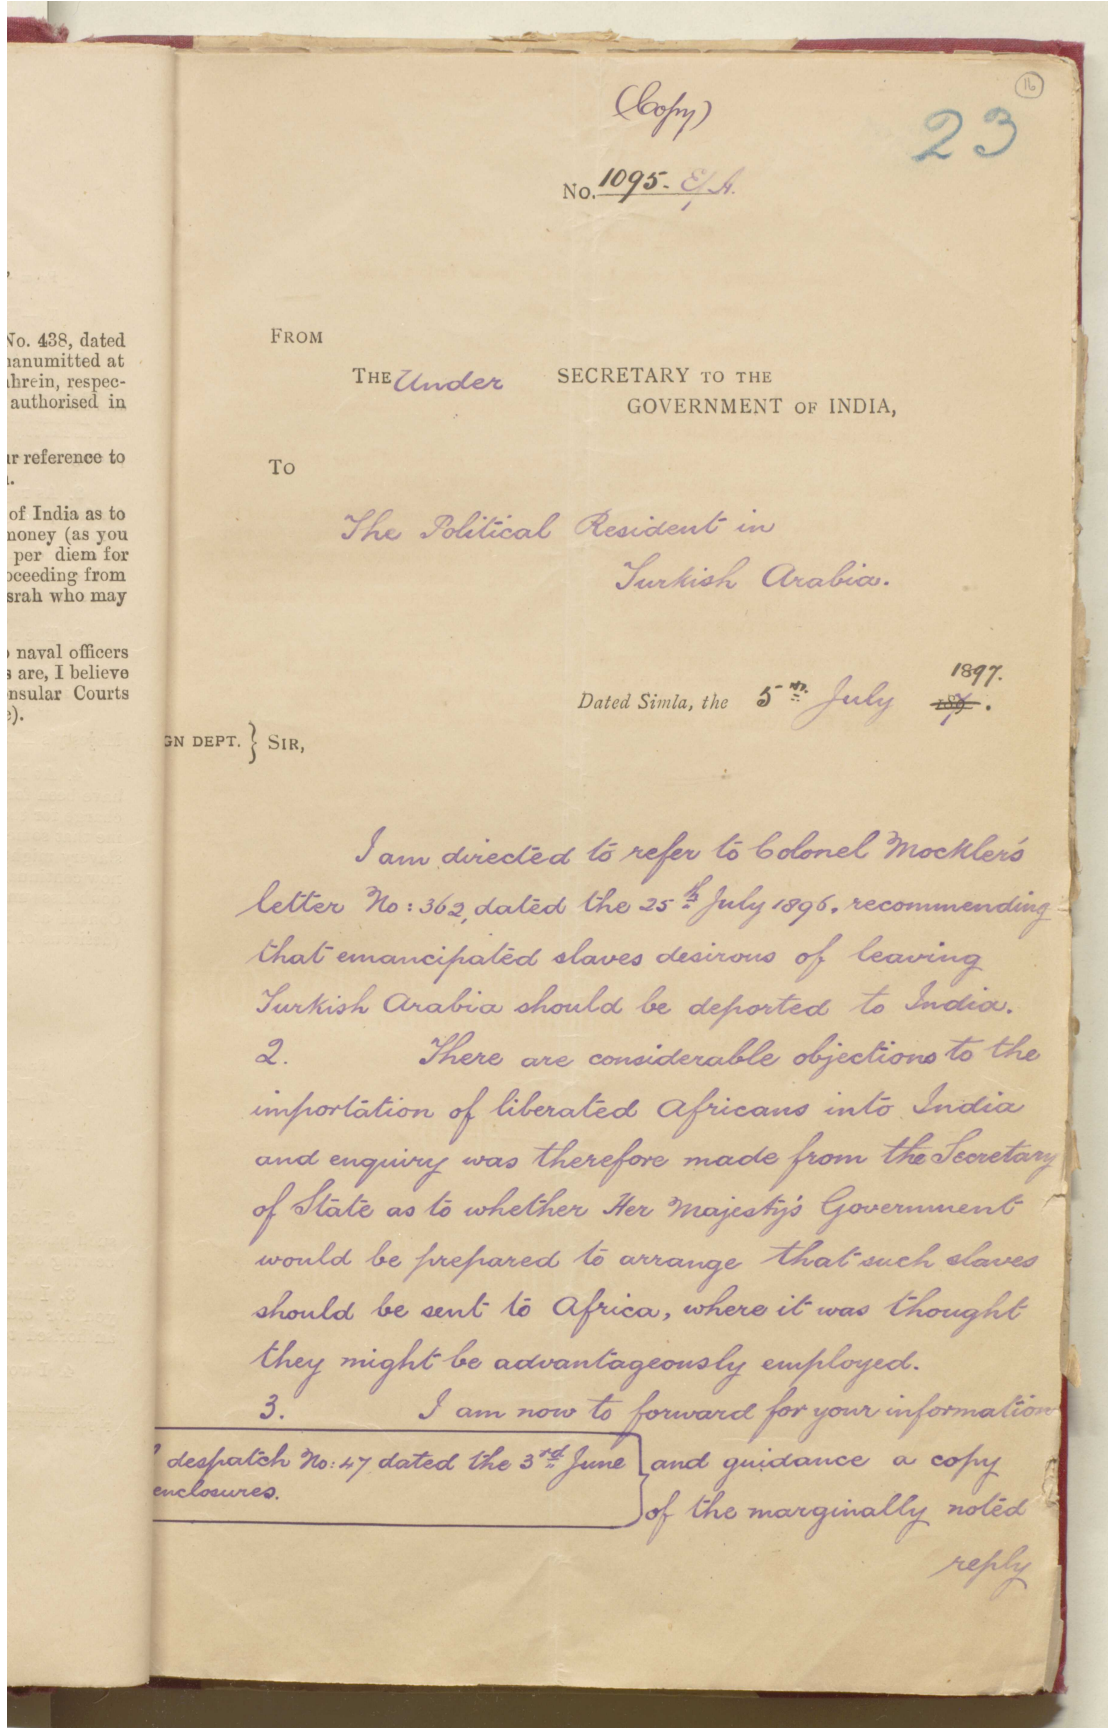 No. 438, dated
manumitted at
hrein, respec-
authorised in
reference to
of India as to
money (as you
per diem for
proceeding from
srah who may
naval officers
are, I believe
Consular Courts
16
(Copy)
23
No. 1095. E/A.
FROM
THE Under SECRETARY TO THE
GOVERNMENT OF INDIA,
TO
The Political Resident in
Turkish Arabia.
1897.
Dated Simla, the 5th July 189 .
GN DEPT. } SIR,
I am directed to refer to Colonel Mockler's
letter No: 362, dated the 25th July 1896, recommending
that emancipated slaves desirous of leaving
Turkish Arabia should be deported to India.
2. There are considerable objections to the
importation of liberated Africans into India
and enquiry was therefore made from the Secretary
of State as to whether Her Majesty's Government
would be prepared to arrange that such slaves
should be sent to Africa, where it was thought
they might be advantageously employed.
3. I am now to forward for your information
despatch No: 47 dated the 3rd June } and guidance a copy
enclosures.
of the marginally noted
reply